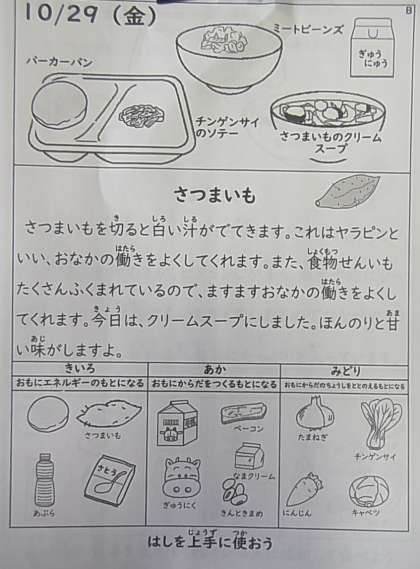 10/29（金）
B
ミートビーンズ
ぎゅう
にゅう
バーカーパン
チンゲンサイ
のソテー
さつまいものクリーム
スープ
さつまいも
さつまいもを切ると白い汁がでてきます。これはヤラピンと
いい、おなかの働きをよくしてくれます。また、食物せんいも
たくさんふくまれているので、ますますおなかの働きをよくし
てくれます。今日は、クリームスープにしました。ほんのりと甘
い味がしますよ。
きいろ あか みどり
おもにエネルギーのもとになる おもにからだをつくるもとになる おもにからだのちょうしをととのえるもとになる
さつまいも
ベーコン
たまねぎ
チンゲンサイ
あぶら
さとう
ぎゅうにく
なまクリーム
きんときまめ
にんじん
キャベツ
はしを上手に使おう